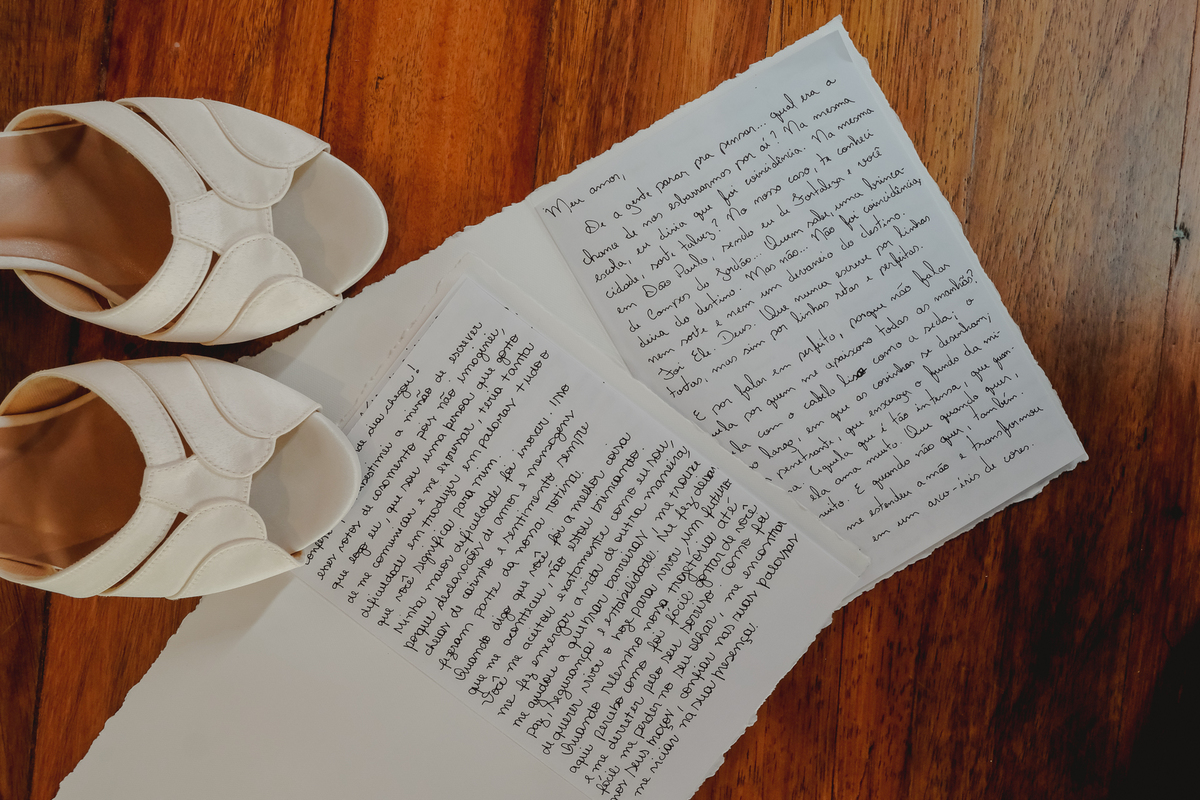 Meu amor,
Se a gente parar pra pensar... qual era a
chance de nos esbarrarmos por aí? Na mesma
escola, eu diria que foi coincidência. Na mesma
cidade, sorte talvez? No nosso caso, te conheci
em São Paulo, sendo eu de Fortaleza e você
de Campos do Jordão... Quem sabe, uma brinca-
deira do destino. Mas não... Não foi coincidência,
nem sorte e nem um devaneio do destino.
Foi Ele. Deus. Que nunca escreve por linhas
tortas, mas sim por linhas retas e perfeitas.
E por falar em perfeito, porque não falar
por quem me apaixono todas as manhãs?
com o cabelo liso como a seda;
largo, em que as covinhas se desenham;
penetrante, que enxerga o fundo da mi-
Aquela que é tão intensa, que quan-
ama muito. Que quando quer,
E quando não quer, também.
me estendeu a mão e transformou
em um arco-íris de cores.
dia, chegou!
a missão de escrever
meus votos de casamento pois não imaginei
que logo eu, que sou uma pessoa que gosto
de me comunicar e me expressar, teria tanta
dificuldade em traduzir em palavras tudo
que você significa para mim.
Minha maior dificuldade foi inovar. Isso
porque, declarações de amor e mensagens
cheias de carinho e sentimento sempre
fizeram parte da nossa rotina.
Quando digo que você foi a melhor coisa
que me aconteceu, não estou brincando
Você me aceitou exatamente como eu sou,
me fez enxergar a vida de outra maneira,
me ajudou a quebrar barreiras, me trouxe
paz, segurança e estabilidade. Me fez deixar
de querer viver o hoje para viver um futuro
Quando relembro nossa trajetória até
aqui percebo como foi fácil gostar de você
e me derreter pelo seu sorriso. Como foi
fácil me perder no seu olhar, me encontrar
nos seus braços, confiar nas suas palavras
me viciar na sua presença.